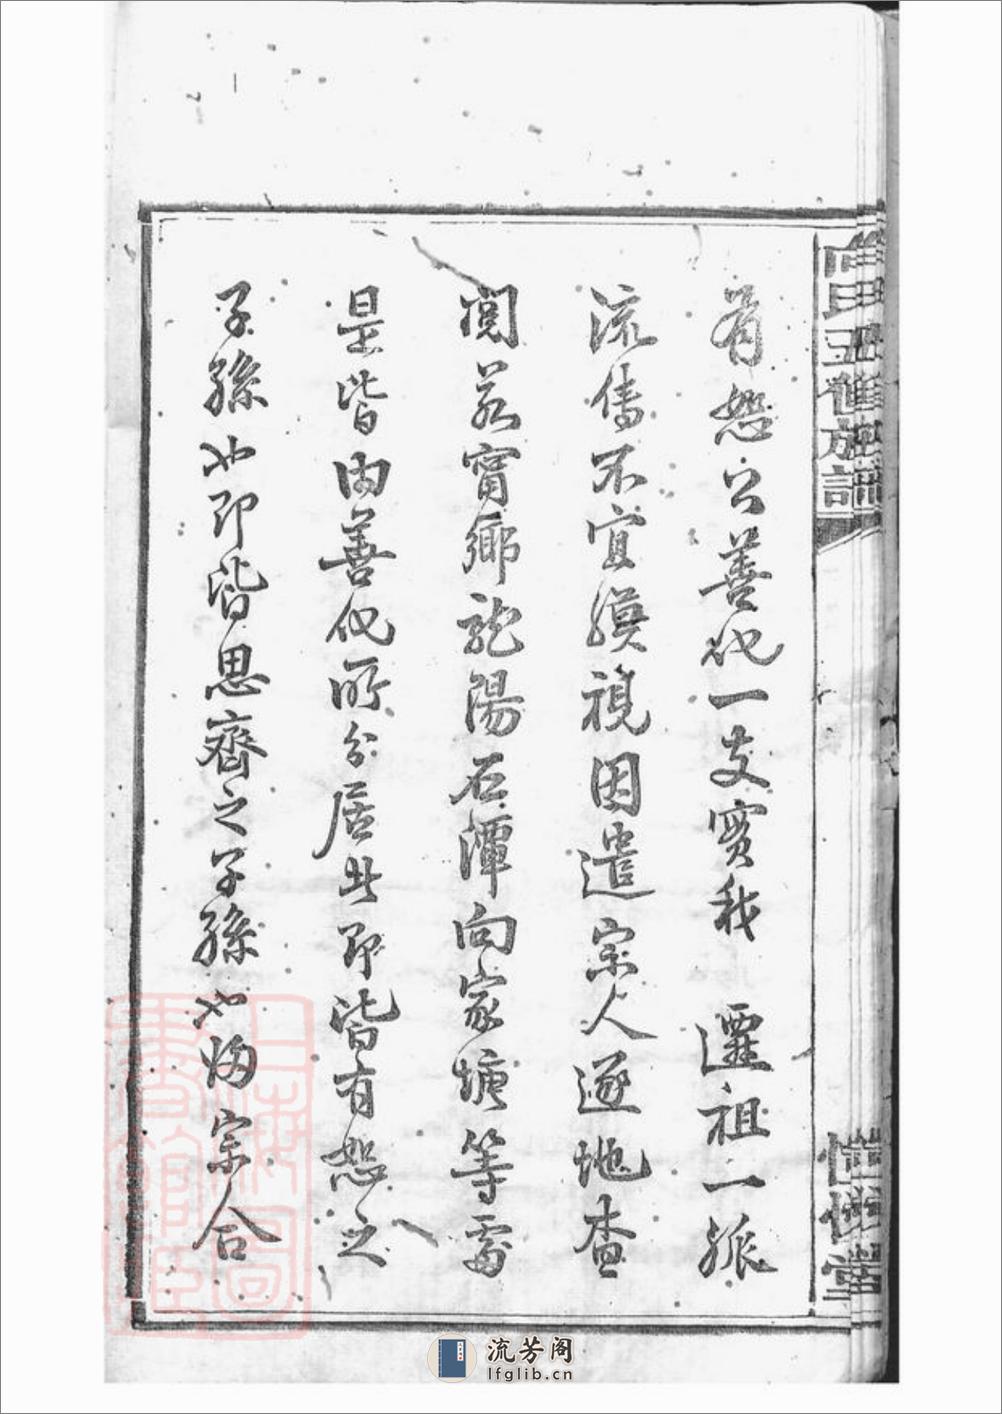 有恕公善化一支實我 遷祖一脈
流傳不宜漠視因遣宗人逐地查
閱若甯鄉龍陽石潭向家塘等處
是皆由善化所分居此即皆有恕之
子孫也即皆思齊之子孫也夫宗合
向氏五修族譜
上海圖書館藏
流芳阁
lfglib.cn